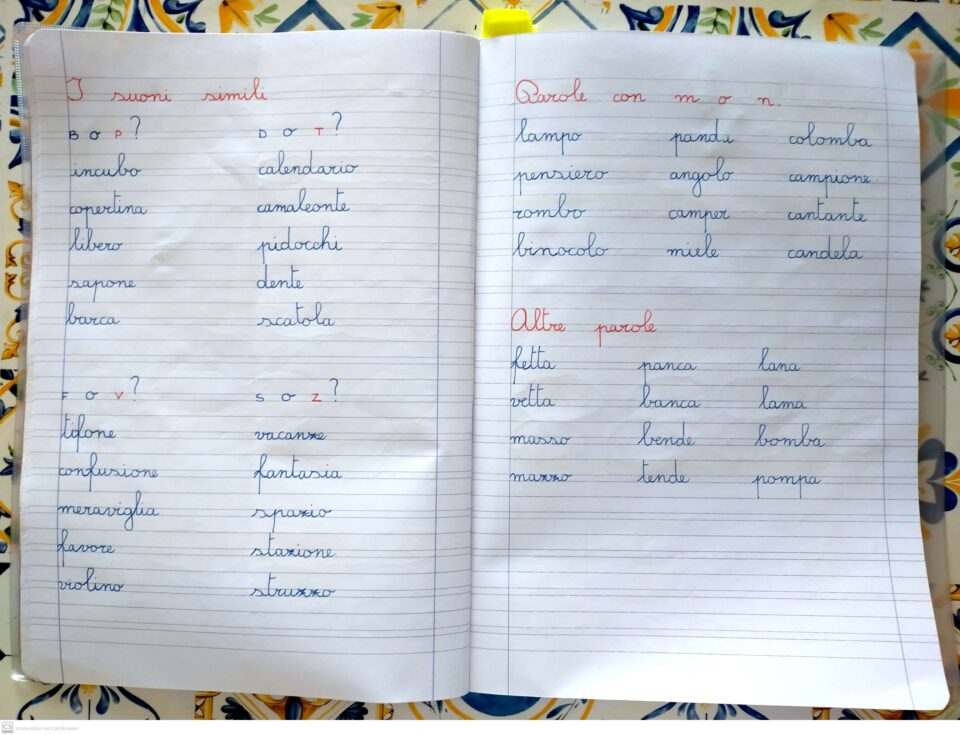 I suoni simili
B o P? D o T?
incubo calendario
copertina camaleonte
libero pidocchi
sapone dente
barca scatola
F o V? S o Z?
tifone vacanze
confusione fantasia
meraviglia spazio
favore stazione
violino struzzo
Parole con m o n.
lampo panda colomba
pensiero angolo campione
rombo camper cantante
binocolo miele candela
Altre parole
fetta panca lana
vetta banca lama
masso bende bomba
mazzo tende pompa
CS Scansionato con CamScanner